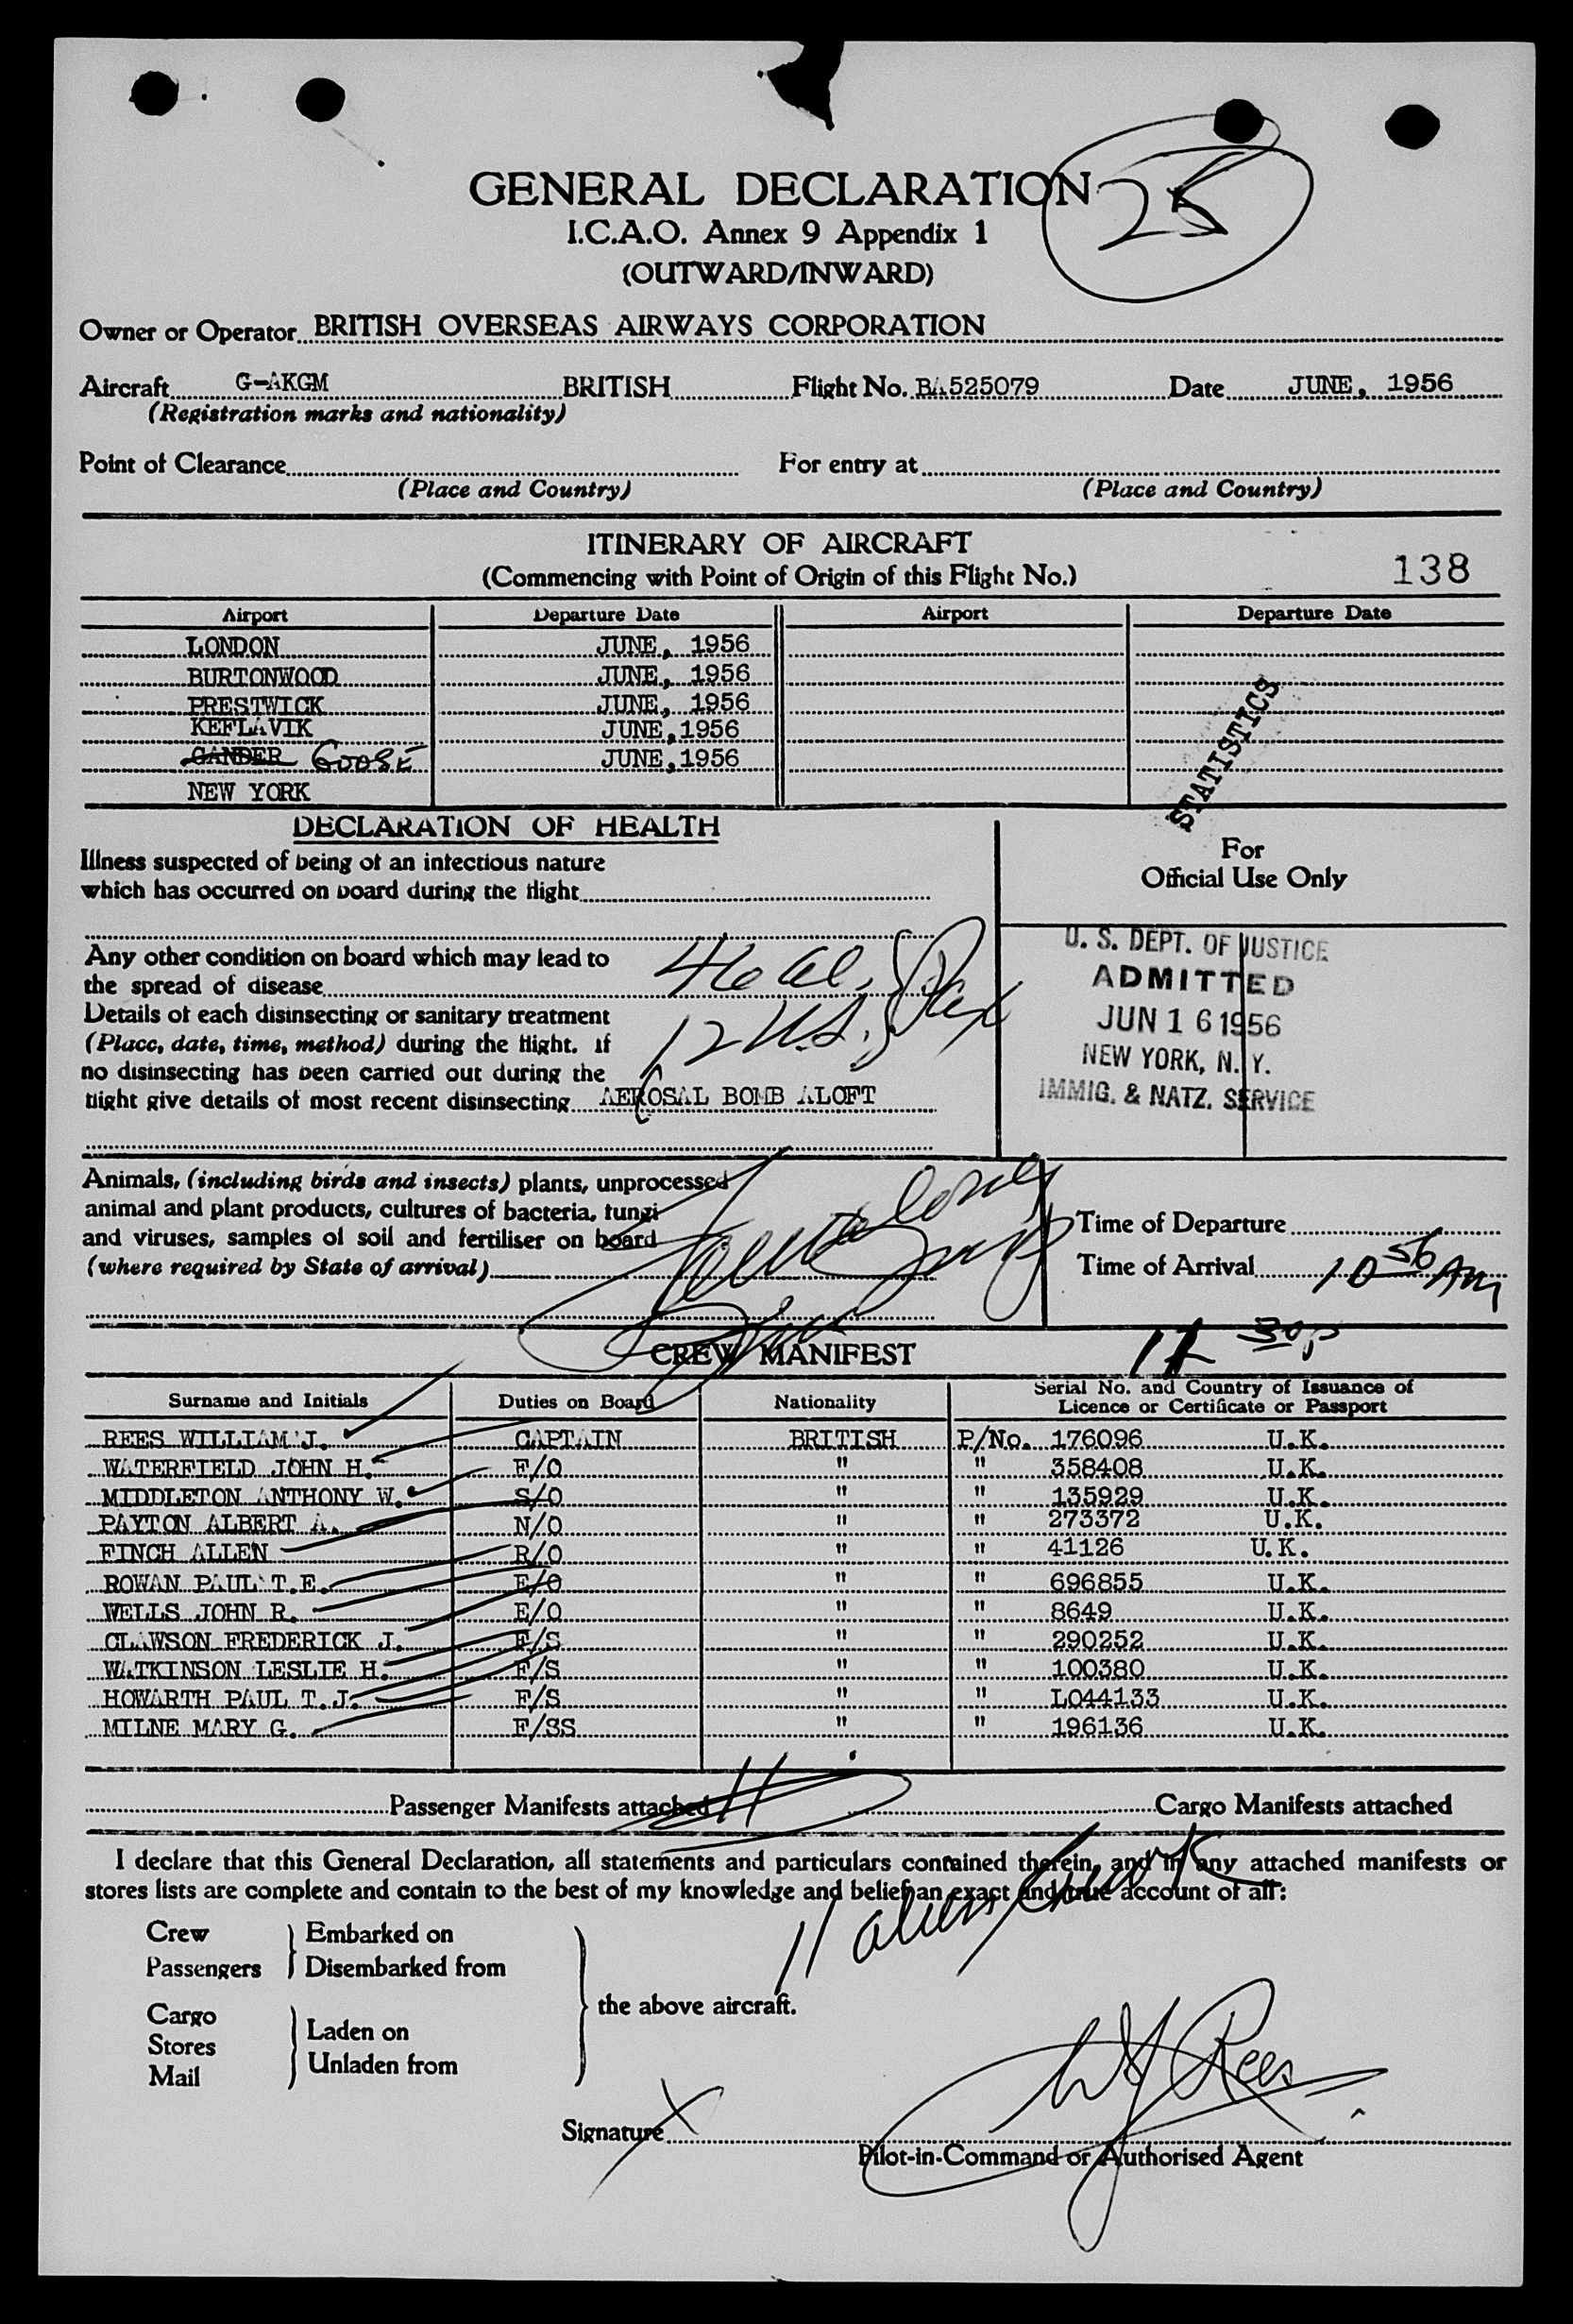 GENERAL DECLARATION
25
I.C.A.O. Annex 9 Appendix 1
(OUTWARD/INWARD)
Owner or Operator BRITISH OVERSEAS AIRWAYS CORPORATION
Aircraft G-AKGM BRITISH Flight No. BA525079 Date JUNE, 1956
(Registration marks and nationality)
Point of Clearance For entry at
(Place and Country) (Place and Country)
ITINERARY OF AIRCRAFT
(Commencing with Point of Origin of this Flight No.) 138
Airport Departure Date Airport Departure Date
LONDON JUNE, 1956
BURTONWOOD JUNE, 1956
PRESTWICK JUNE, 1956
KEFLAVIK JUNE,1956
GANDER GOOSE JUNE,1956
NEW YORK
STATISTICS
DECLARATION OF HEALTH
Illness suspected of being of an infectious nature
which has occurred on board during the flight
For
Official Use Only
Any other condition on board which may lead to
the spread of disease
Details of each disinsecting or sanitary treatment
(Place, date, time, method) during the flight. If
no disinsecting has been carried out during the
flight give details of most recent disinsecting AEROSAL BOMB ALOFT
46 al.
12 U.S. Pax
U. S. DEPT. OF JUSTICE
ADMITTED
JUN 16 1956
NEW YORK, N. Y.
IMMIG. & NATZ. SERVICE
Animals, (including birds and insects) plants, unprocessed
animal and plant products, cultures of bacteria, fungi
and viruses, samples of soil and fertiliser on board
(where required by State of arrival)
Time of Departure
Time of Arrival 10 56 AM
CREW MANIFEST
Surname and Initials Duties on Board Nationality Serial No. and Country of Issuance of
Licence or Certificate or Passport
REES WILLIAM J. CAPTAIN BRITISH P/No. 176096 U.K.
WATERFIELD JOHN H. F/O " " 358408 U.K.
MIDDLETON ANTHONY W. S/O " " 135929 U.K.
PAYTON ALBERT A. N/O " " 273372 U.K.
FINCH ALLEN R/O " " 41126 U.K.
ROWAN PAUL T.E. E/O " " 696855 U.K.
WELLS JOHN R. E/O " " 8649 U.K.
CLAWSON FREDERICK J. F/S " " 290252 U.K.
WATKINSON LESLIE H. F/S " " 100380 U.K.
HOWARTH PAUL T.J. F/S " " L044133 U.K.
MILNE MARY G. F/SS " " 196136 U.K.
Passenger Manifests attached 11 Cargo Manifests attached
I declare that this General Declaration, all statements and particulars contained therein, and in any attached manifests or
stores lists are complete and contain to the best of my knowledge and belief an exact and true account of all:
11 alien crew
Crew Embarked on
Passengers Disembarked from
the above aircraft.
Cargo
Stores Laden on
Mail Unladen from
Signature X W J Rees
Pilot-in-Command or Authorised Agent